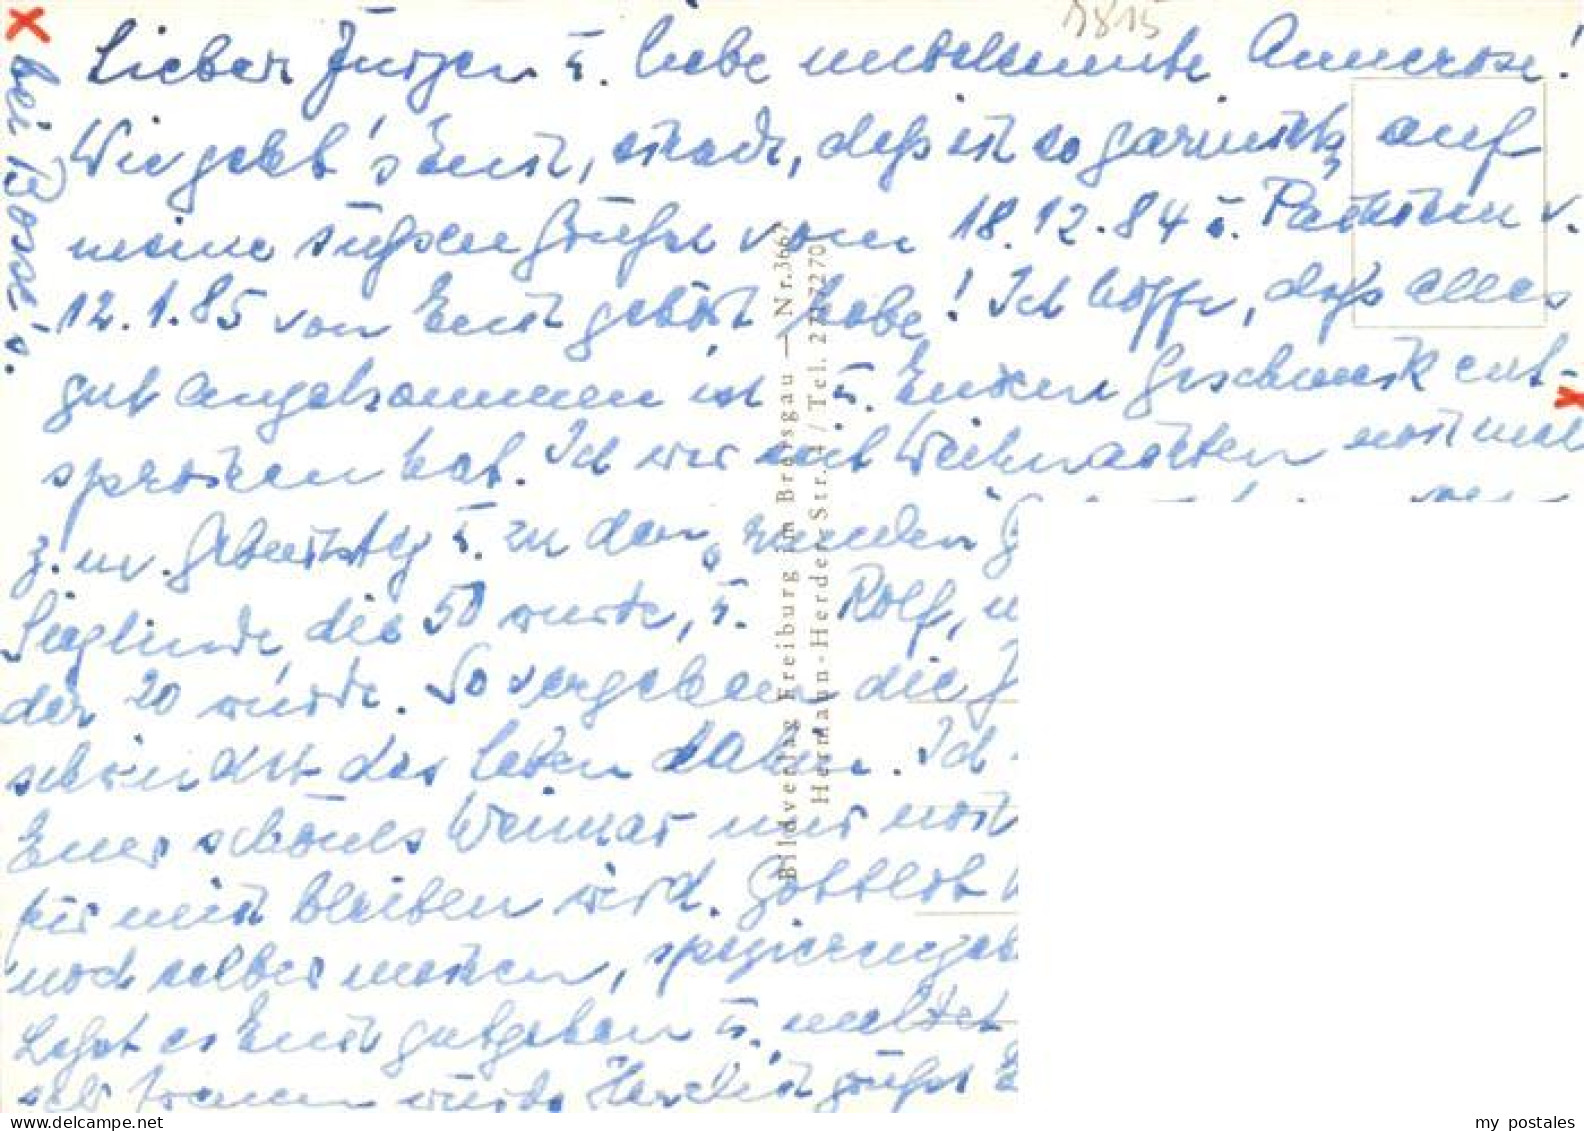 1815
Lieber Jürgen u. liebe unbekannte Annerose!
Wie geht's Euch, schade, daß ich so garnichts auf
meine süßen Grüße vom 18.12.84 u. Päckchen v.
12.1.85 von Euch gehört habe! Ich hoffe, daß alles
gut angekommen ist u. Euren Geschmack ent-
sprochen hat. Ich war mit Weihnachten nochmal
z. m. Geburtstag u. zu den "runden
Sieglinde die 50 wurde, u. Rolf,
der 20 wurde. So vergehen die
schwindet das Leben dahin. Ich
Euer schönes Weimar nur noch
für mich bleiben wird. Gottlob
noch selber machen, spazierengeh
Laßt es Euch gutgehen u. meldet
sehr freuen würde Herzlich grüßt
bei v.
Bildverlag Freiburg im Breisgau — Nr. 366
Hermann-Herder-Str. 4 / Tel. 2717270
my postales